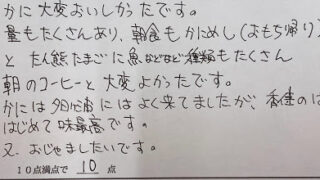 かに大変おいしかったです。
量もたくさんあり、朝食もかにめし(おもち帰り)
と たん熊たまごに魚などなど種類もたくさん
朝のコーヒーと大変よかったです。
かには夕日ヶ浦にはよく来てましたが、香住のは
はじめて味最高です。
又、おじゃましたいです。
10点満点で 10 点